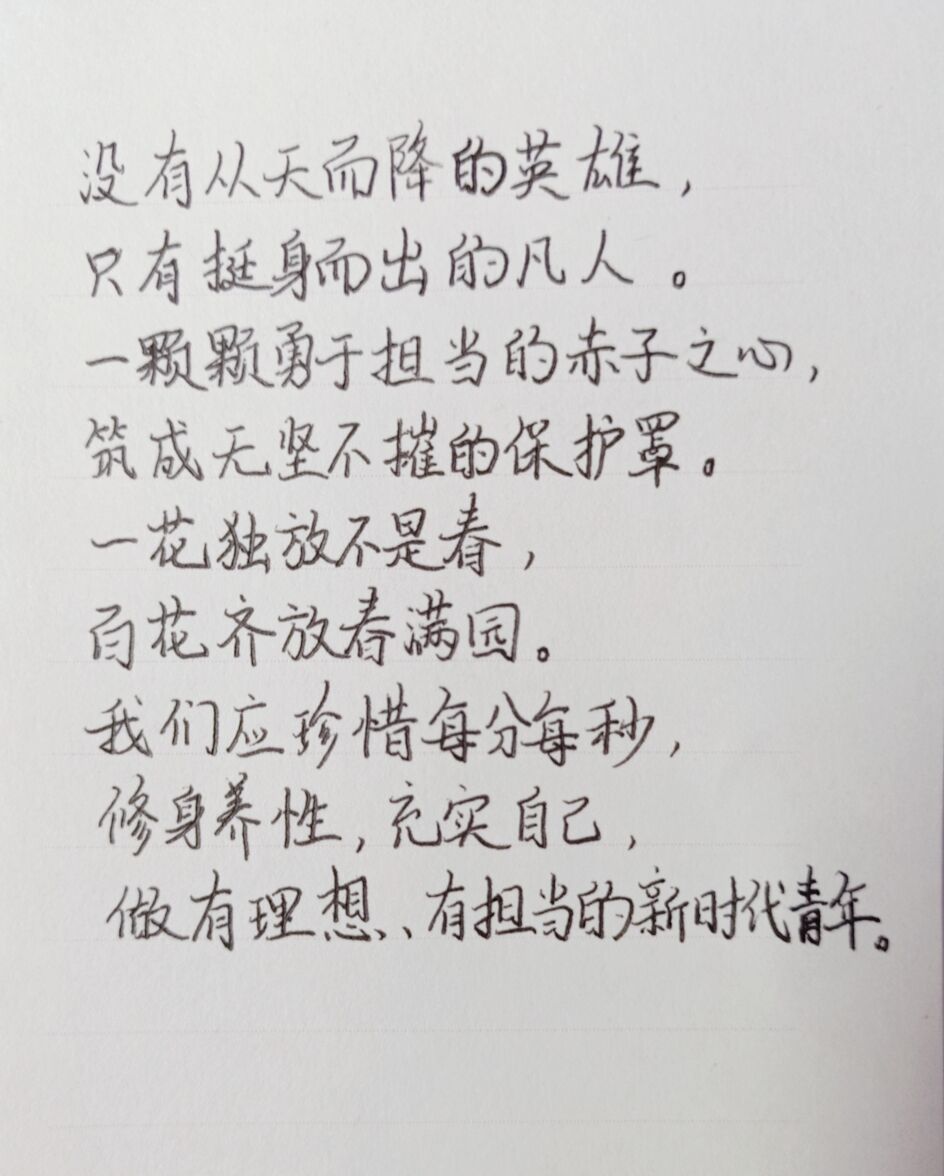 没有从天而降的英雄，
只有挺身而出的凡人。
一颗颗勇于担当的赤子之心，
筑成无坚不摧的保护罩。
一花独放不是春，
百花齐放春满园。
我们应珍惜每分每秒，
修身养性，充实自己，
做有理想、有担当的新时代青年。